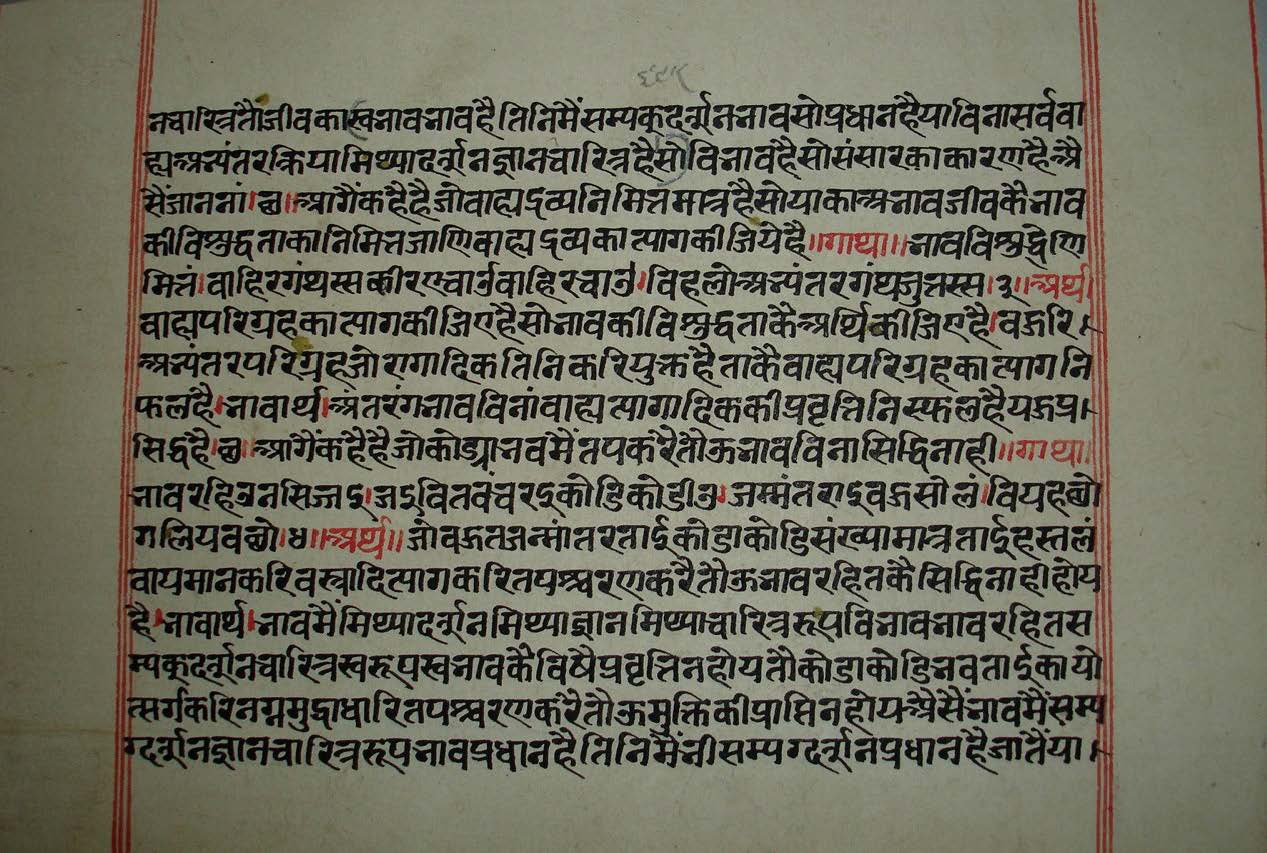 ६९९
नचारित्र तौ जीवका स्वभाव भाव है तिनिमैं सम्यक्दर्शन भाव सो प्रधान है या विना सर्व वा
ह्य अभ्यंतर क्रिया मिथ्यादर्शनज्ञानचारित्र है सो विभाव है सो संसारका कारण है अै
सैं जाननां।छ॥ आगैं कहै है जो वाह्य द्रव्य निमित्त मात्र है सो याका अभाव जीवकै भाव
की विशुद्धताका निमित्त जाणि वाह्य द्रव्यका त्याग कीजिये है॥गाथा॥ भावविशुद्धिणि
मित्तं।वाहिरगंथस्स कीरए चाउ वाहिरचाउ।विहलो अभ्यंतरगंथजुत्तस्स।३॥अर्थ।
वाह्य परिग्रहका त्याग कीजिए है सो भावकी विशुद्धताकै अर्थि कीजिए है।वहुरि।
अभ्यंतर परिग्रह जो रागादिक तिनिकरि युक्त है ताकै वाह्य परिग्रहका त्याग नि
फल है।भावार्थ।अंतरंग भाव विनां वाह्य त्यागादिककी प्रवृत्ति निस्फल है यह प्र।
सिद्ध है।छ॥आगैं कहै है जो कोड्यां भवमैं तप करै तौऊ भाव विना सिद्धि नाही॥गाथा।
भावरहिउ न सिज्झइ।जइ वि तवं चरइ कोडिकोडीउ।जम्मंतराइ वहुसो लं।वियहत्थो
गलियवत्थो।४॥अर्थ॥ जो वहुत जन्मांतरताईं कोडाकोडि संख्या मात्र ताईं हस्त लं
वायमान करि वस्त्रादि त्याग करि तपश्चरण करै तौऊ भावरहितकै सिद्धि नाही होय
है।भावार्थ।भावमैं मिथ्यादर्शन मिथ्याज्ञान मिथ्याचारित्ररूप विभाव भाव रहित स
म्यक्दर्शनचारित्रस्वरूप स्वभावकै विषै प्रवृत्ति न होय तौ कोडाकोडि भवताईं कायो
त्सर्ग करि नग्नमुद्रा धारि तपश्चरण करै तौऊ मुक्तिकी प्राप्ति न होय अैसैं भावमैं सम्य
ग्दर्शनज्ञानचारित्ररूप भाव प्रधान है तिनिमैं भी सम्यग्दर्शन प्रधान है जातैं या।